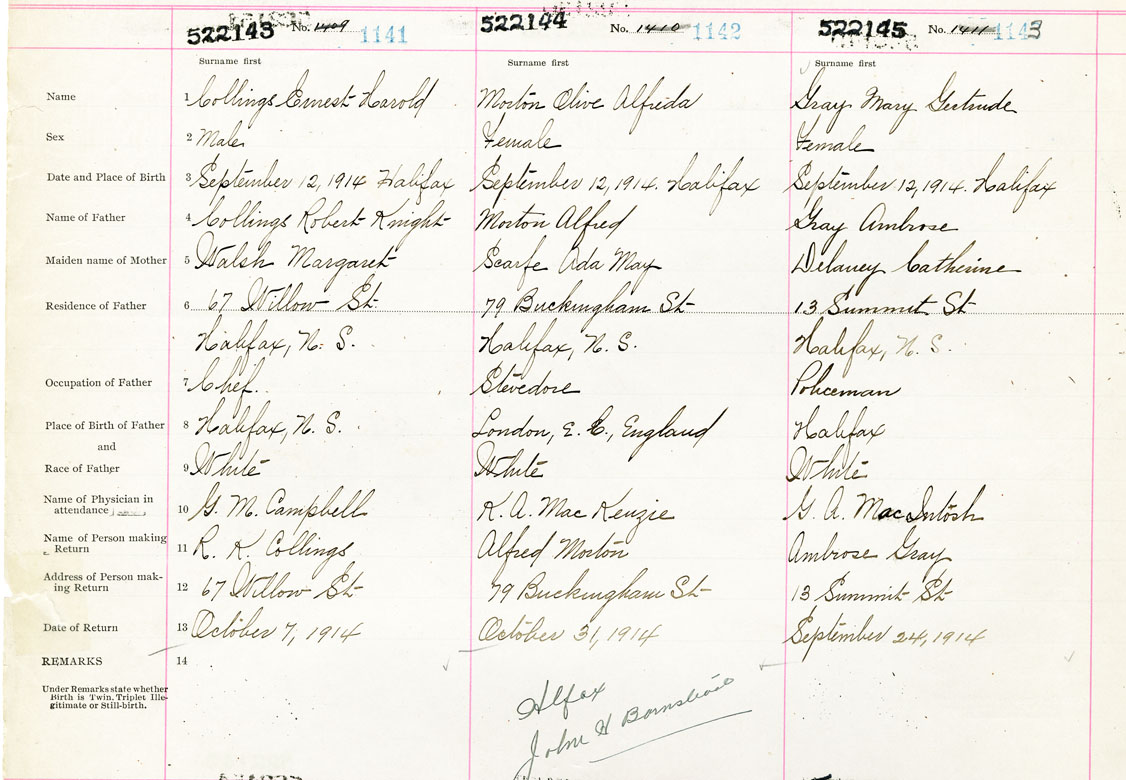 522143 No. 1409 1141 522144 No. 1410 1142 522145 No. 1411 1143
Surname first Surname first Surname first
Name 1 Collings Ernest Harold Morton Olive Alfreda Gray Mary Gertrude
Sex 2 Male Female Female
Date and Place of Birth 3 September 12, 1914 Halifax September 12, 1914. Halifax September 12, 1914. Halifax
Name of Father 4 Collings Robert Knight Morton Alfred Gray Ambrose
Maiden name of Mother 5 Walsh Margaret Scarfe Ada May Delaney Catherine
Residence of Father 6 67 Willow St. 79 Buckingham St 13 Summit St
Halifax, N. S. Halifax, N. S. Halifax, N. S.
Occupation of Father 7 Chef. Stevedore Policeman
Place of Birth of Father 8 Halifax, N. S. London, E. C., England Halifax
and
Race of Father 9 White White White
Name of Physician in
attendance 10 G. M. Campbell K. A. Mac Kenzie G. A. MacIntosh
Name of Person making
Return 11 R. K. Collings Alfred Morton Ambrose Gray
Address of Person mak-
ing Return 12 67 Willow St 79 Buckingham St 13 Summit St
Date of Return 13 October 7, 1914 October 31, 1914 September 24, 1914
REMARKS 14
Under Remarks state whether
Birth is Twin, Triplet Ille-
gitimate or Still-birth.
Hlfax
John H